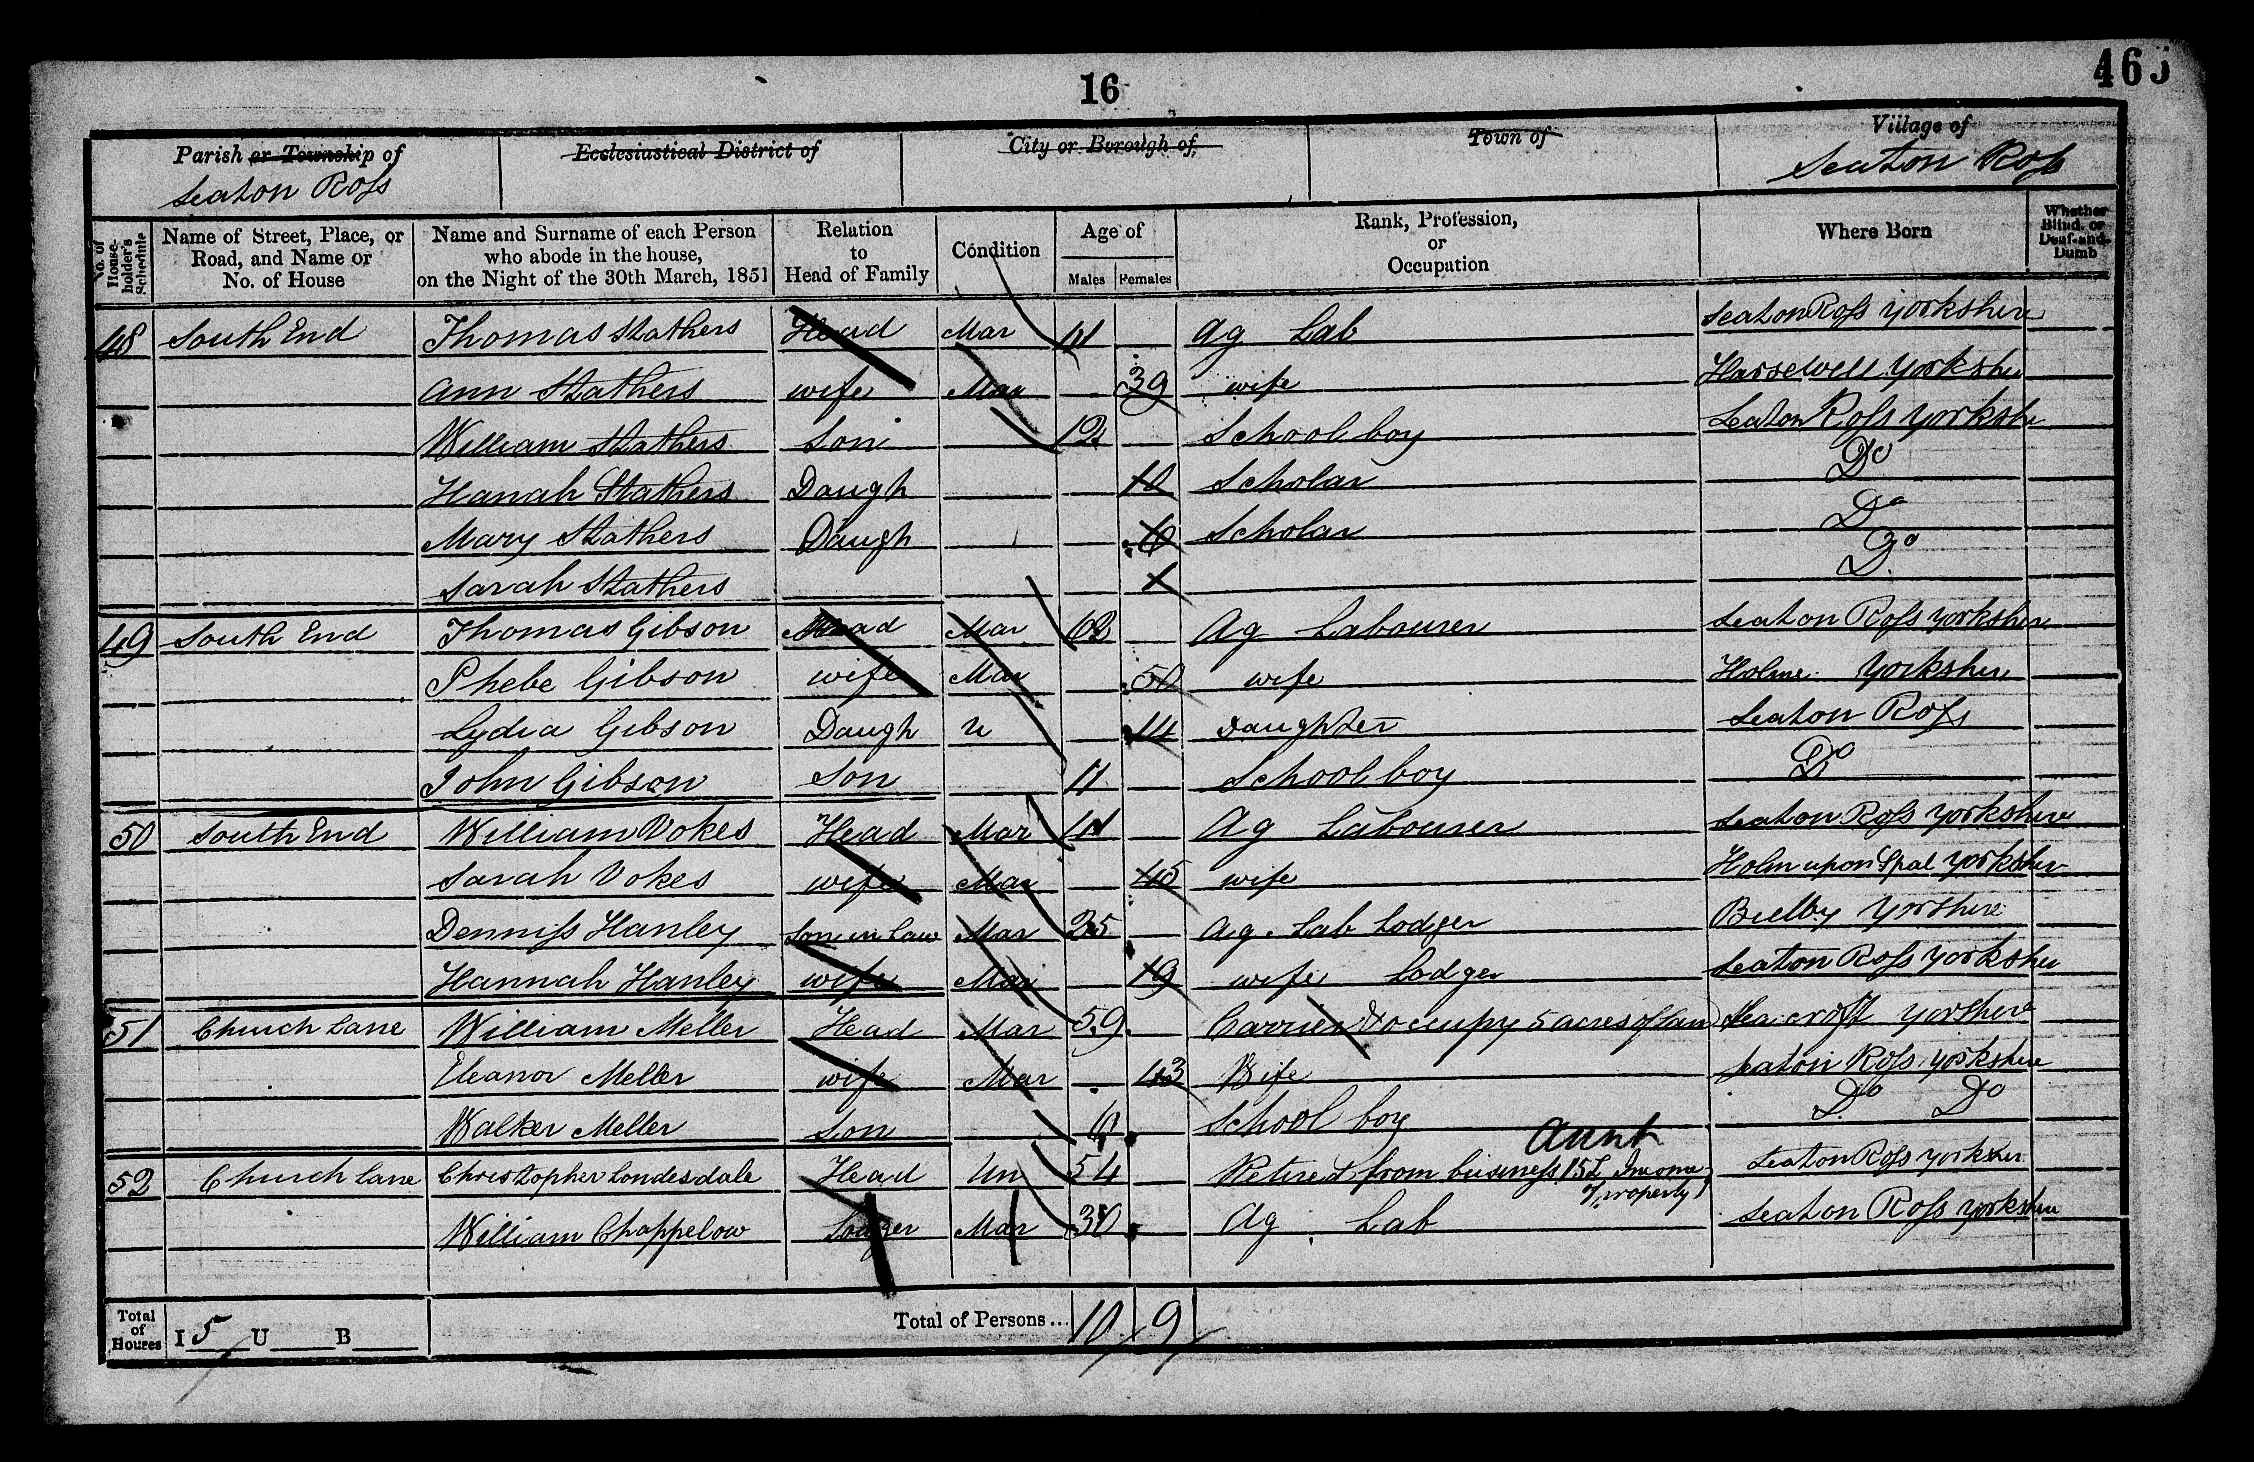 16
465
Parish or Township of
Seaton Ross
Ecclesiastical District of
City or Borough of
Town of
Village of
Seaton Ross
No. of House-holder's Schedule
Name of Street, Place, or Road, and Name or No. of House
Name and Surname of each Person who abode in the house, on the Night of the 30th March, 1851
Relation to Head of Family
Condition
Age of
Males Females
Rank, Profession, or Occupation
Where Born
Whether Blind, or Deaf-and-Dumb
48 South End Thomas Stathers Head Mar Ag Lab Seaton Ross Yorkshire
Ann Stathers wife Mar 39 wife Harsewell Yorkshire
William Stathers Son 12 School boy Seaton Ross Yorkshire
Hannah Stathers Daugh 10 Scholar Do
Mary Stathers Daugh 6 Scholar Do
Sarah Stathers 1 Do
49 South End Thomas Gibson Head Mar Ag Labourer Seaton Ross Yorkshire
Phebe Gibson wife Mar wife Holme Yorkshire
Lydia Gibson Daugh u 14 Daughter Seaton Ross
John Gibson Son 11 School boy Do
50 South End William Vokes Head Mar Ag Labourer Seaton Ross Yorkshire
Sarah Vokes wife Mar 45 wife Holm upon Spal Yorkshire
Denniss Hanley Son in Law Mar 25 Ag. Lab Lodger Bielby Yorshire
Hannah Hanley wife Mar 19 wife Lodger Seaton Ross Yorkshire
51 Church Lane William Meller Head Mar 59 Carrier & occupy 5 acres of lan Seacroft Yorshere
Eleanor Meller wife Mar 43 Wife Seaton Ross Yorkshire
Walker Meller Son School boy Do Do
Aunt
52 Church Lane Christopher Londesdale Head Un 54 Retired from business 15L Income Seaton Ross Yorksher
of property
William Chappelow Lodger Mar 30 Ag Lab Seaton Ross Yorkshire
Total of Houses I 5 U B Total of Persons... 10 9